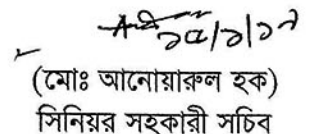 ১৫/১/১৭
(মোঃ আনোয়ারুল হক)
সিনিয়র সহকারী সচিব